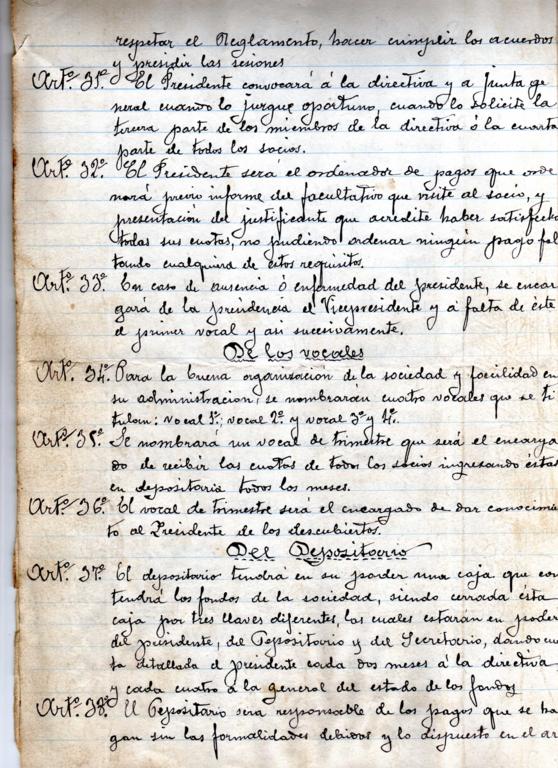 respetar el Reglamento, hacer cumplir los acuerdos
y presidir las sesiones
Artº. 31º. El Presidente convocará á la directiva y a junta ge
neral cuando lo juzgue oportuno, cuando lo solicite la
tercera parte de los miembros de la directiva ó la cuarta
parte de todos los socios.
Artº. 32º. El Presidente será el ordenador de pagos que orde
nará previo informe del facultativo que visite al socio, y
presentación del justificante que acredite haber satisfecho
todas sus cuotas, no pudiendo ordenar ningún pago fal
tando cualquiera de estos requisitos.
Artº. 33º. En caso de ausencia ó enfermedad del presidente, se encar
gará de la presidencia el Vicepresidente y á falta de éste
el primer vocal y asi sucesivamente.
De los vocales
Artº. 34º. Para la buena organización de la sociedad y facilidad en
su administración, se nombrarán cuatro vocales que se ti
tulan: vocal 1º; vocal 2º y vocal 3º y 4º.
Artº. 35º. Se nombrará un vocal de trimestre que será el encarga
do de recibir las cuotas de todos los socios ingresando éstas
en depositaria todos los meses.
Artº. 36º. El vocal de trimestre será el encargado de dar conocimie
to al Presidente de los descubiertos.
Del Depositario
Artº. 37º. El depositario tendrá en su poder una caja que con
tendrá los fondos de la sociedad, siendo cerrada ésta
caja por tres claves diferentes, las cuales estarán en poder
del presidente, del Depositario y del Secretario, dando cue
ta detallada el presidente cada dos meses á la directiva
y cada cuatro á la general del estado de los fondos
Artº. 38º. El Depositario sera responsable de los pagos que se ha
gan sin las formalidades debidas y lo dispuesto en el ar